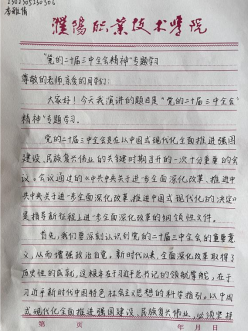 濮阳职业技术学院
"党的二十届三中全会精神"专题学习
尊敬的老师,亲爱的同学们:
大家好!今天我演讲的题目是"党的二十届三中全会
精神"专题学习。
党的二十届三中全会是在以中国式现代化全面推进强国
建设、民族复兴伟业的关键时期召开的一次十分重要的会
议。会议通过的《中共中央关于进一步全面深化改革、推进中
国式现代化的决定》
是指导新征程上进一步全面深化改革的纲领性文件。
首先,我们要深刻认识到党的二十届三中全会的重要意
义,从而增强政治自觉。新时代以来,全面深化改革取得了
历史性的成就,这根本在于习近平总书记的领航掌舵,在于
习近平新时代中国特色社会主义思想的科学指引。以中国
式现代化全面推进强国建设、民族复兴伟业,必须坚持
第 页 年 月 日